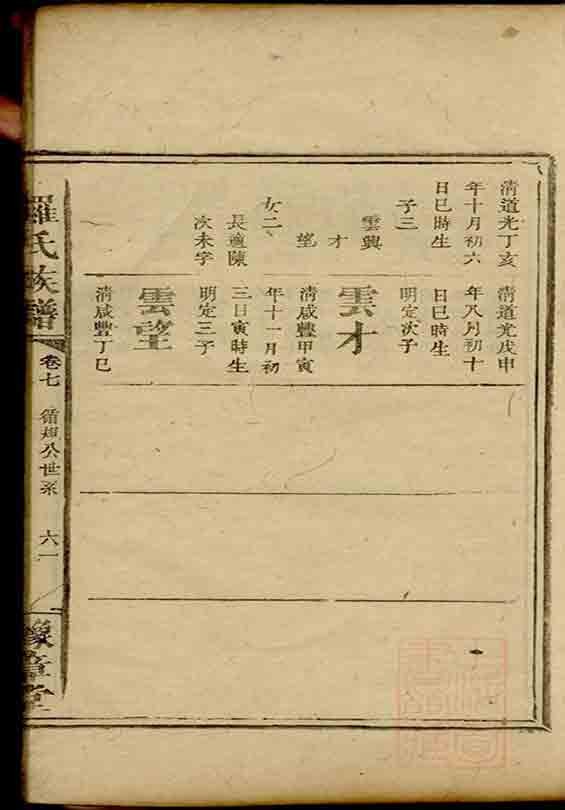 清道光丁亥
年十月初六
日巳時生
子三
雲興
才
望
女二
長適陳
次未字
清道光戊申
年八月初十
日巳時生
明定次子
雲才
清咸豐甲寅
年十一月初
三日寅時生
明定三子
雲望
清咸豐丁巳
羅氏族譜
卷七
公世系
六一
豫章堂